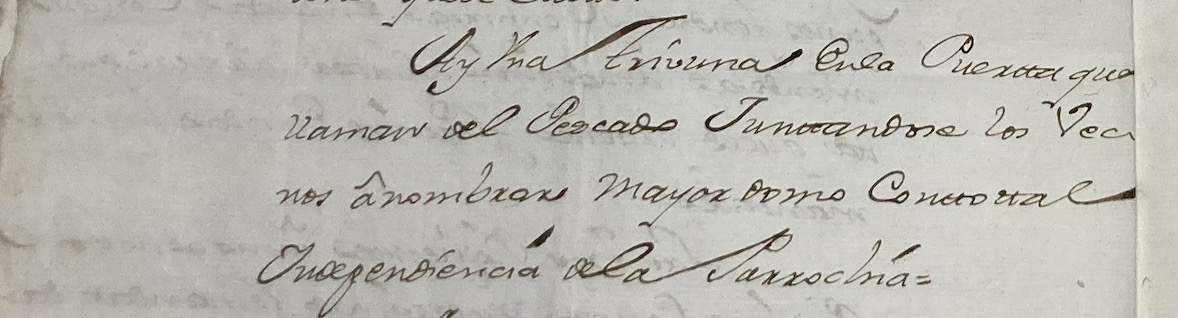 Ay Vna Trivuna Enla Puertta que
llaman del Pescado Junttandose los Veci
nos â nombrar Mayordomo Conttottal
Independiencia dela Parrochia=